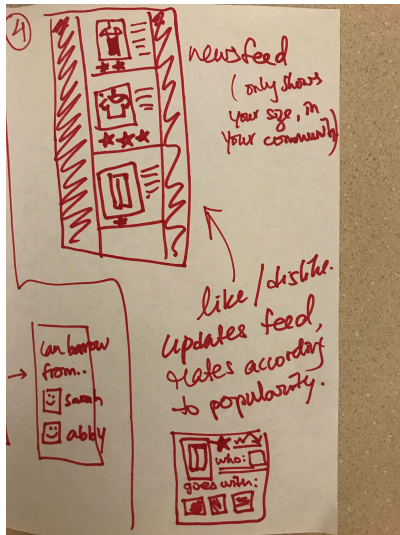 4
newsfeed
(only shows
your size, in
your community)
like/dislike.
updates feed,
rates according
to popularity.
can borrow
from..
sarah
abby
who:
goes with: